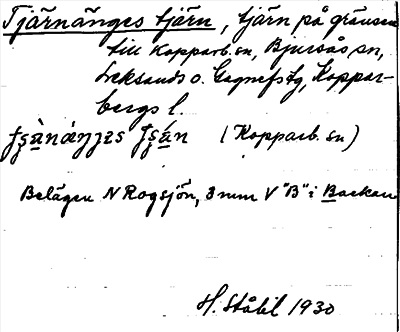 Tjärnänges tjärn, tjärn på gränsen
till Kopparb. sn, Bjursås sn,
Leksands o. Gagnefs tg, Koppar-
bergs l.
(Kopparb. sn)
Belägen N Rogsjön, 3 mm V "B" i Backan
H. Ståhl 1930